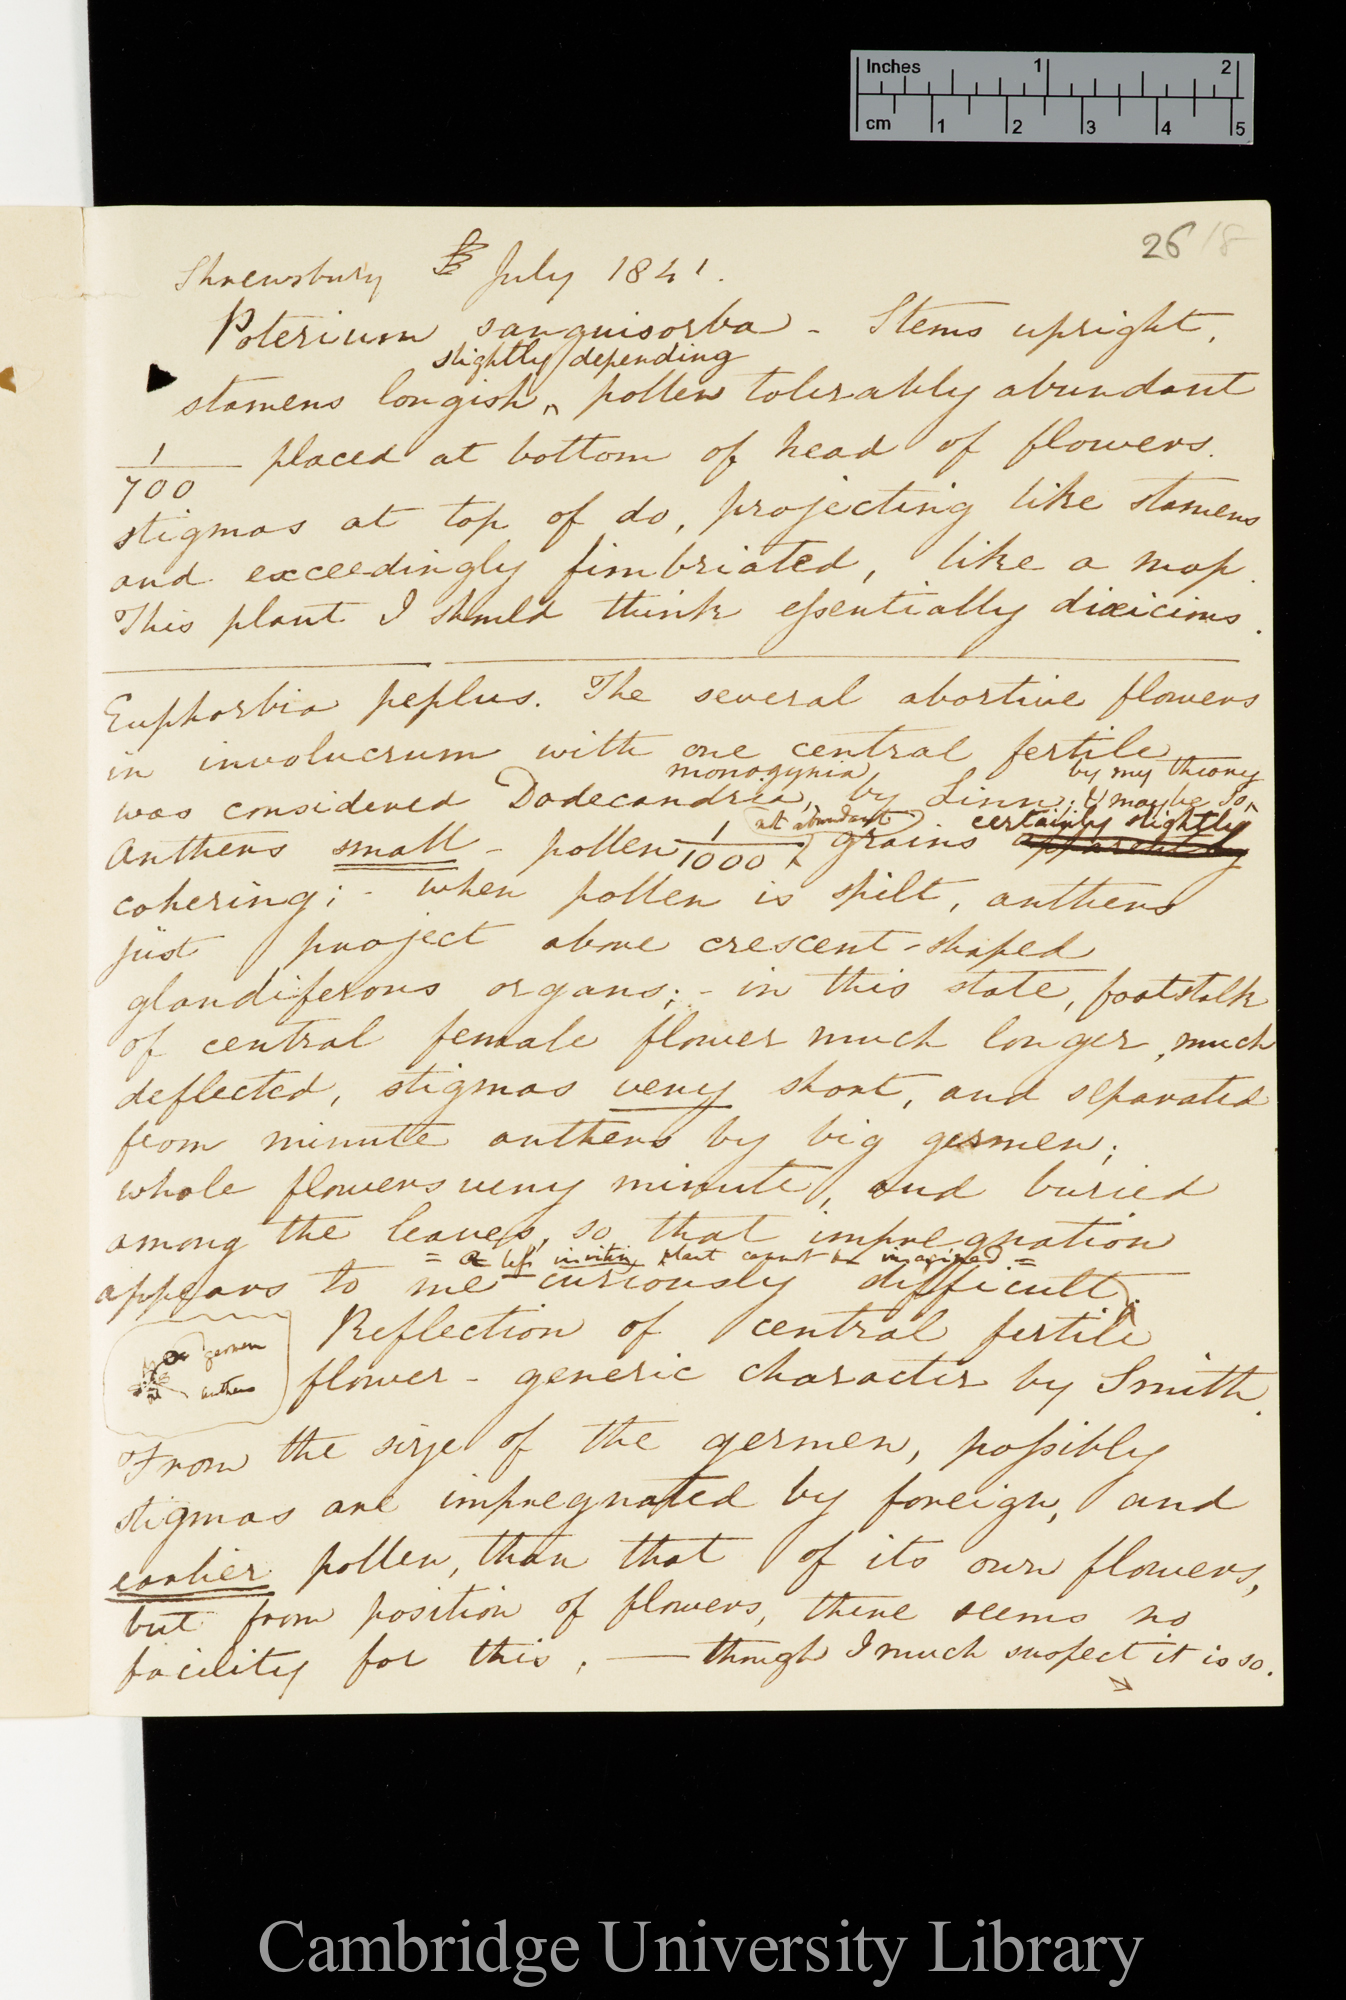 Inches 1 2
cm 1 2 3 4 5
26 18
Shrewsbury July 1841.
Poterium sanguisorba - Stems upright,
slightly depending
stamens longish, pollen tolerably abundant
1/700 placed at bottom of head of flowers.
stigmas at top of do, projecting like stamens
and exceedingly fimbriated, like a mop.
This plant I should think essentially dixicious.
Euphorbia peplus. The several abortive flowers
in involucrum with one central fertile
monogynia by my theory
was considered Dodecandria, by Linn: & may be so,
not abundant certainly slightly
Anthers small - pollen 1/1000 grains apparently
cohering; - when pollen is spilt, anthers
just project above crescent-shaped
glandiferous organs; - in this state, footstalk
of central female flower much longer, much
deflected, stigmas very short, and separated
from minute anthers by big germen;
whole flowers very minute, and buried
among the leaves, so that impregnation
= a less inviting plant cannot be imagined =
appears to me curiously difficult.
germen
anthers
Reflection of central fertile
flower - generic character by Smith.
From the size of the germen, possibly
stigmas are impregnated by foreign, and
earlier pollen, than that of its own flowers,
but from position of flowers, there seems no
facility for this, — though I much suspect it is so.
Cambridge University Library